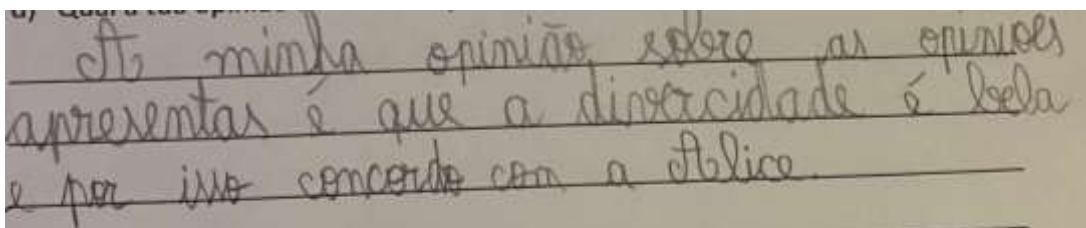 A minha opinião sobre as opinioes
apresentas é que a divercidade é bela
e por isso concordo com a Alice.